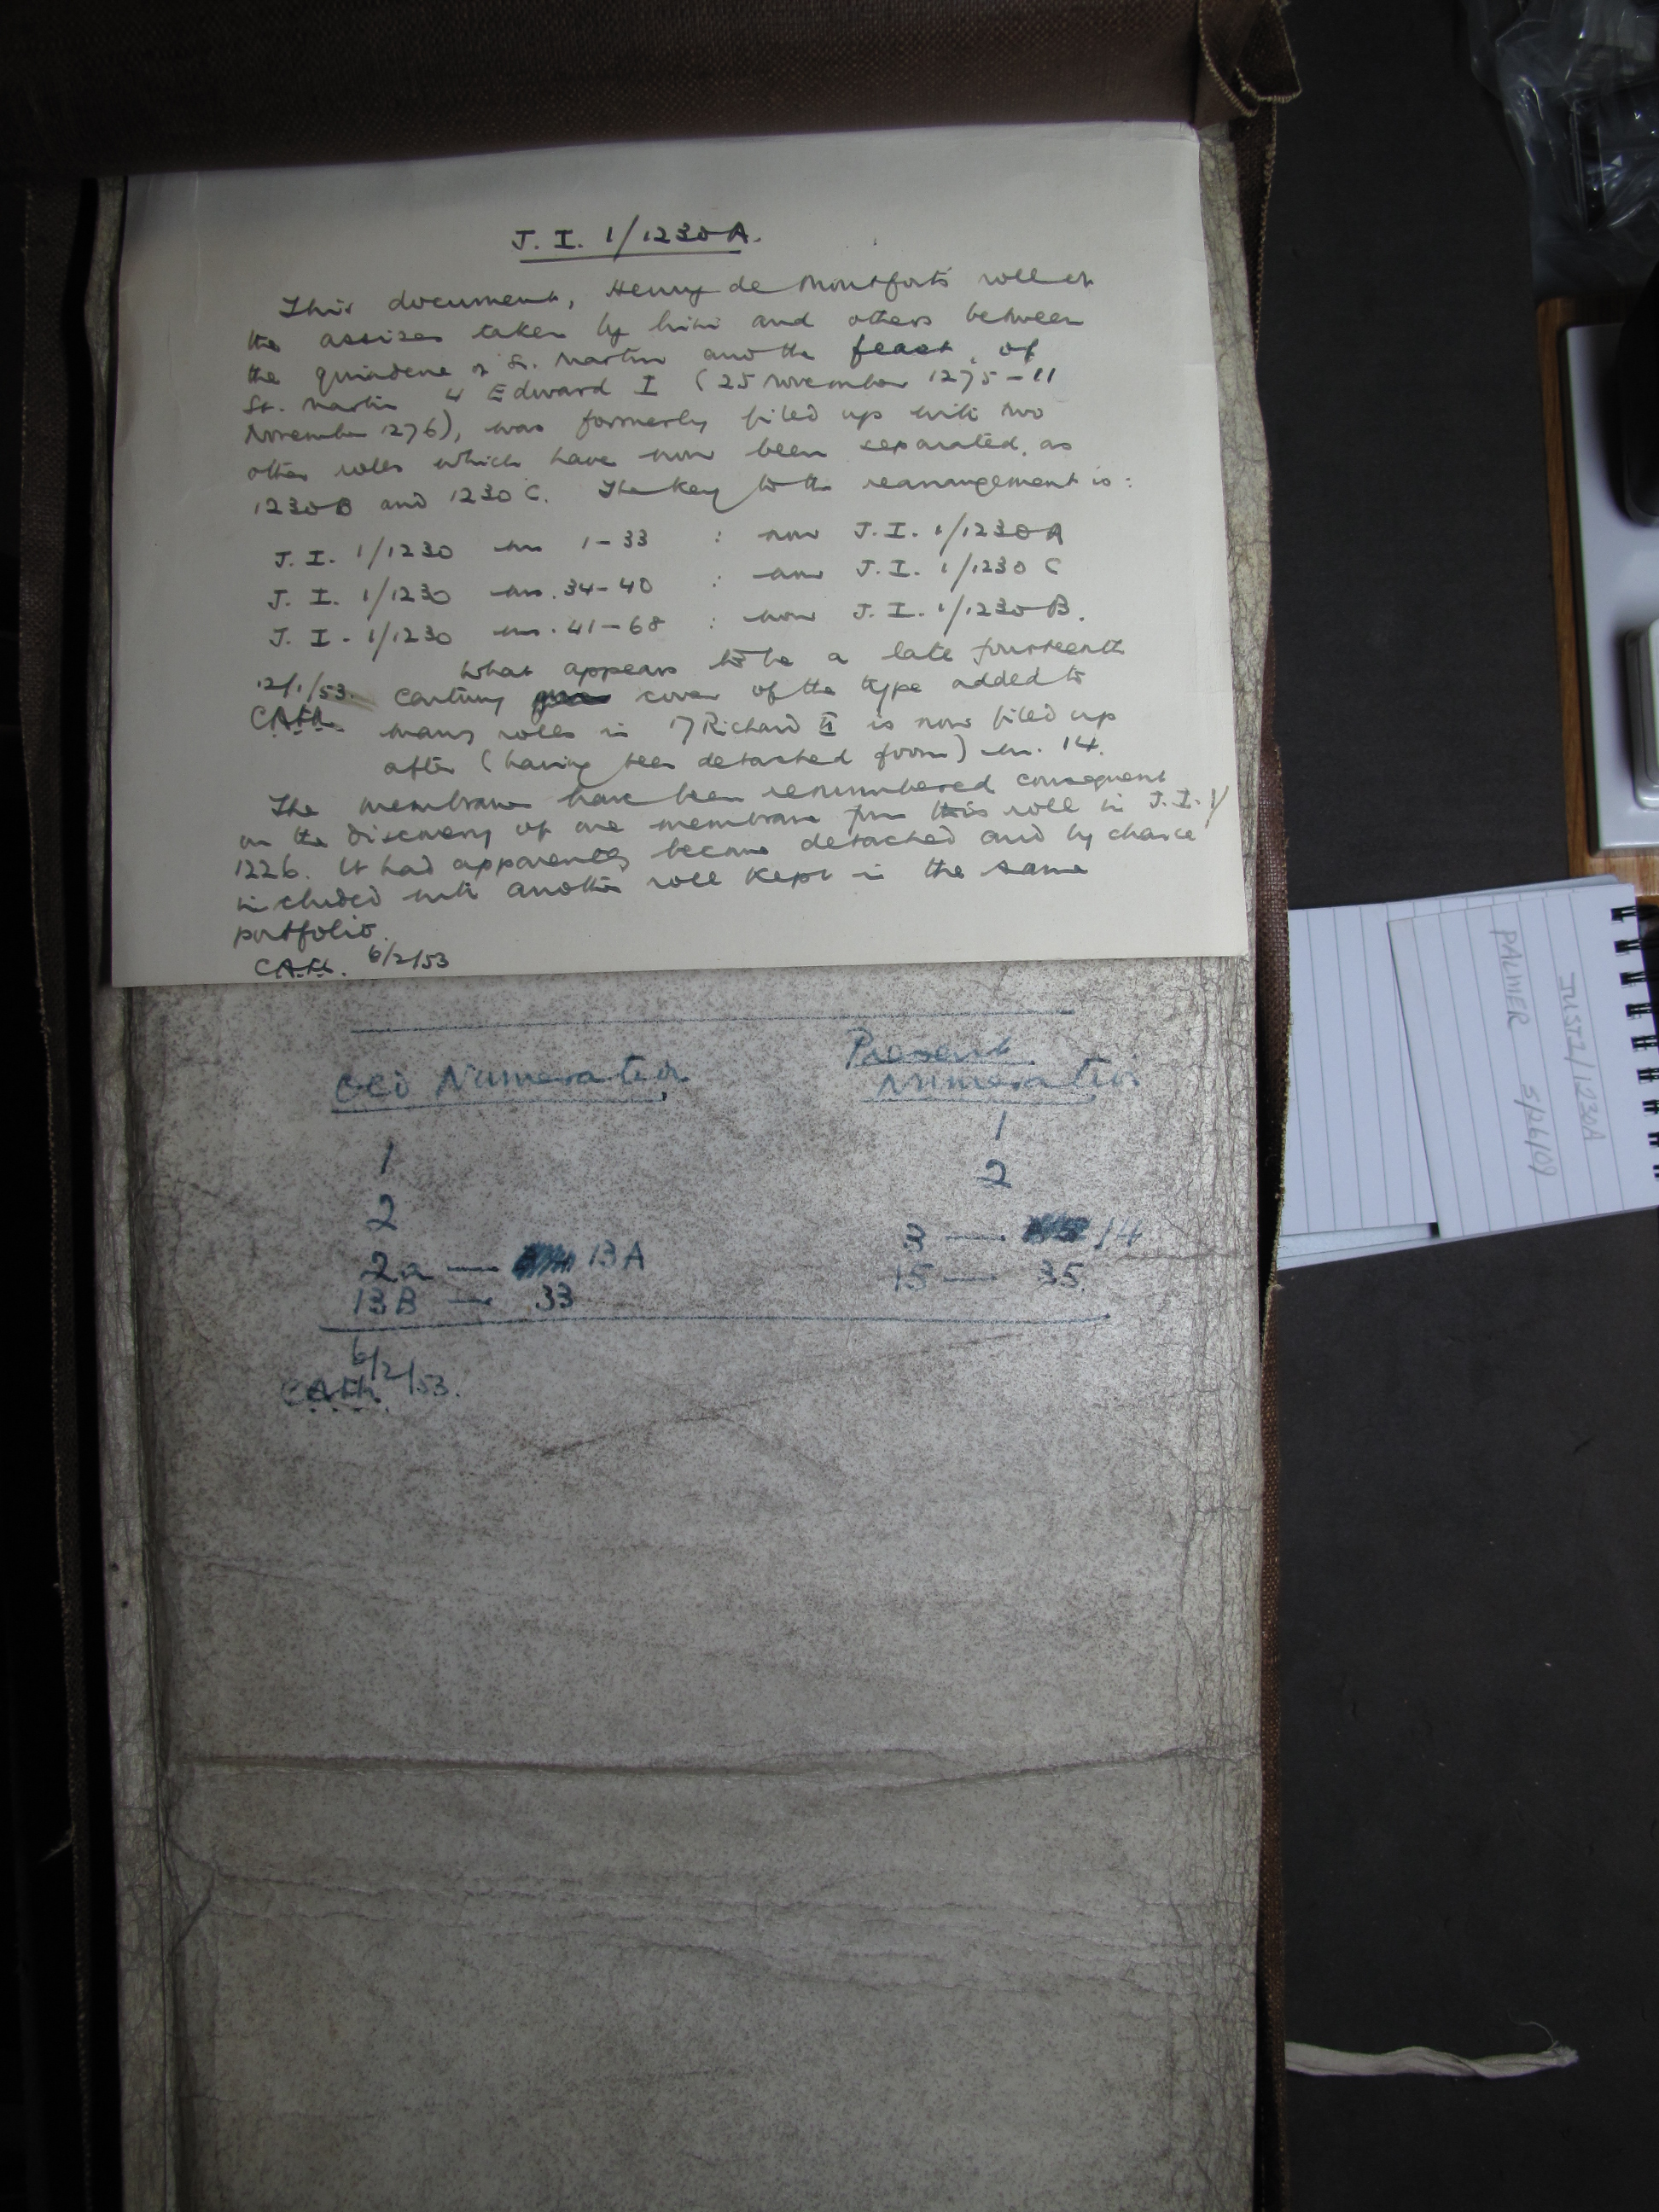 J. I. 1/1230A.
This document, Henry de Montfort's roll of
the assizes taken by him and others between
the quindene of St. Martin and the feast of
St. Martin 4 Edward I (25 November 1275 – 11
November 1276), was formerly filed up with two
other rolls which have now been separated as
1230B and 1230C. The key to the rearrangement is:
J. I. 1/1230 mm 1–33 : now J. I. 1/1230A
J. I. 1/1230 mm. 34–40 : now J. I. 1/1230C
J. I. 1/1230 mm. 41–68 : now J. I. 1/1230B.
What appears to be a late fourteenth
12/1/53. century cover of the type added to
C.A.F.M. many rolls in 17 Richard II is now filed up
after (having been detached from) m. 14.
The membranes have been renumbered consequent
on the discovery of one membrane from this roll in J.I. 1/
1226. It had apparently become detached and by chance
included with another roll kept in the same
portfolio.
C.A.F.M. 6/2/53
Old Numeration Present
Numeration
1 1
2 2
2a — 13A 3 — 14
13B — 33 15 — 35.
6/2/53.
C.A.F.M.
JUST 1/1230A
PALMER